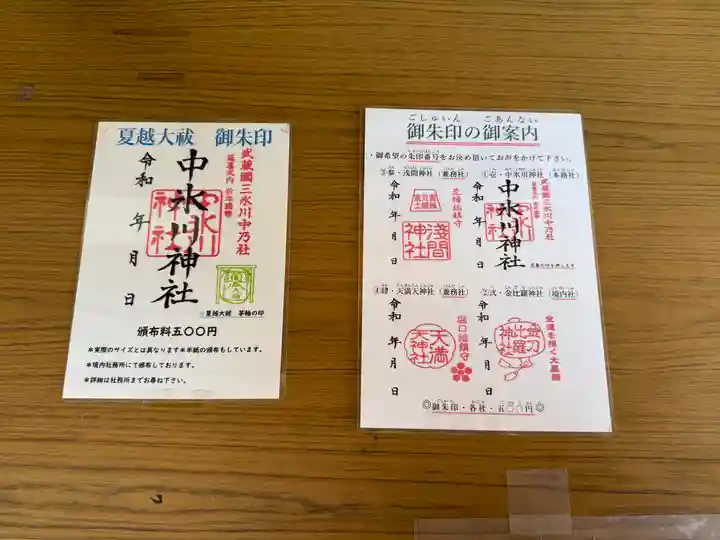 夏越大祓 御朱印
武蔵國三氷川中乃社
延喜式内 祈年國幣
中氷川神社
令和 年 月 日
夏越大祓 茅輪の印
頒布料五〇〇円
*実際のサイズとは異なります*半紙の頒布もしています。
*境内社務所にて頒布しております。
*詳細は社務所までお尋ね下さい。
ごしゅいん ごあんない
御朱印の御案内
・御希望の朱印番号をお決め頂いてお声をかけて下さい。
①壱・中氷川神社(本務社)
武蔵國三氷川中乃社
中氷川神社
令和 年 月 日
②弐・金比羅神社(境内社)
金運を招く大黒様
金刀比羅神社
令和 年 月 日
③参・浅間神社(兼務社)
淺間神社
令和 年 月 日
④肆・天満天神社(兼務社)
堀口鎮守
天満天神社
令和 年 月 日
◎御朱印・各社・五〇〇円◎